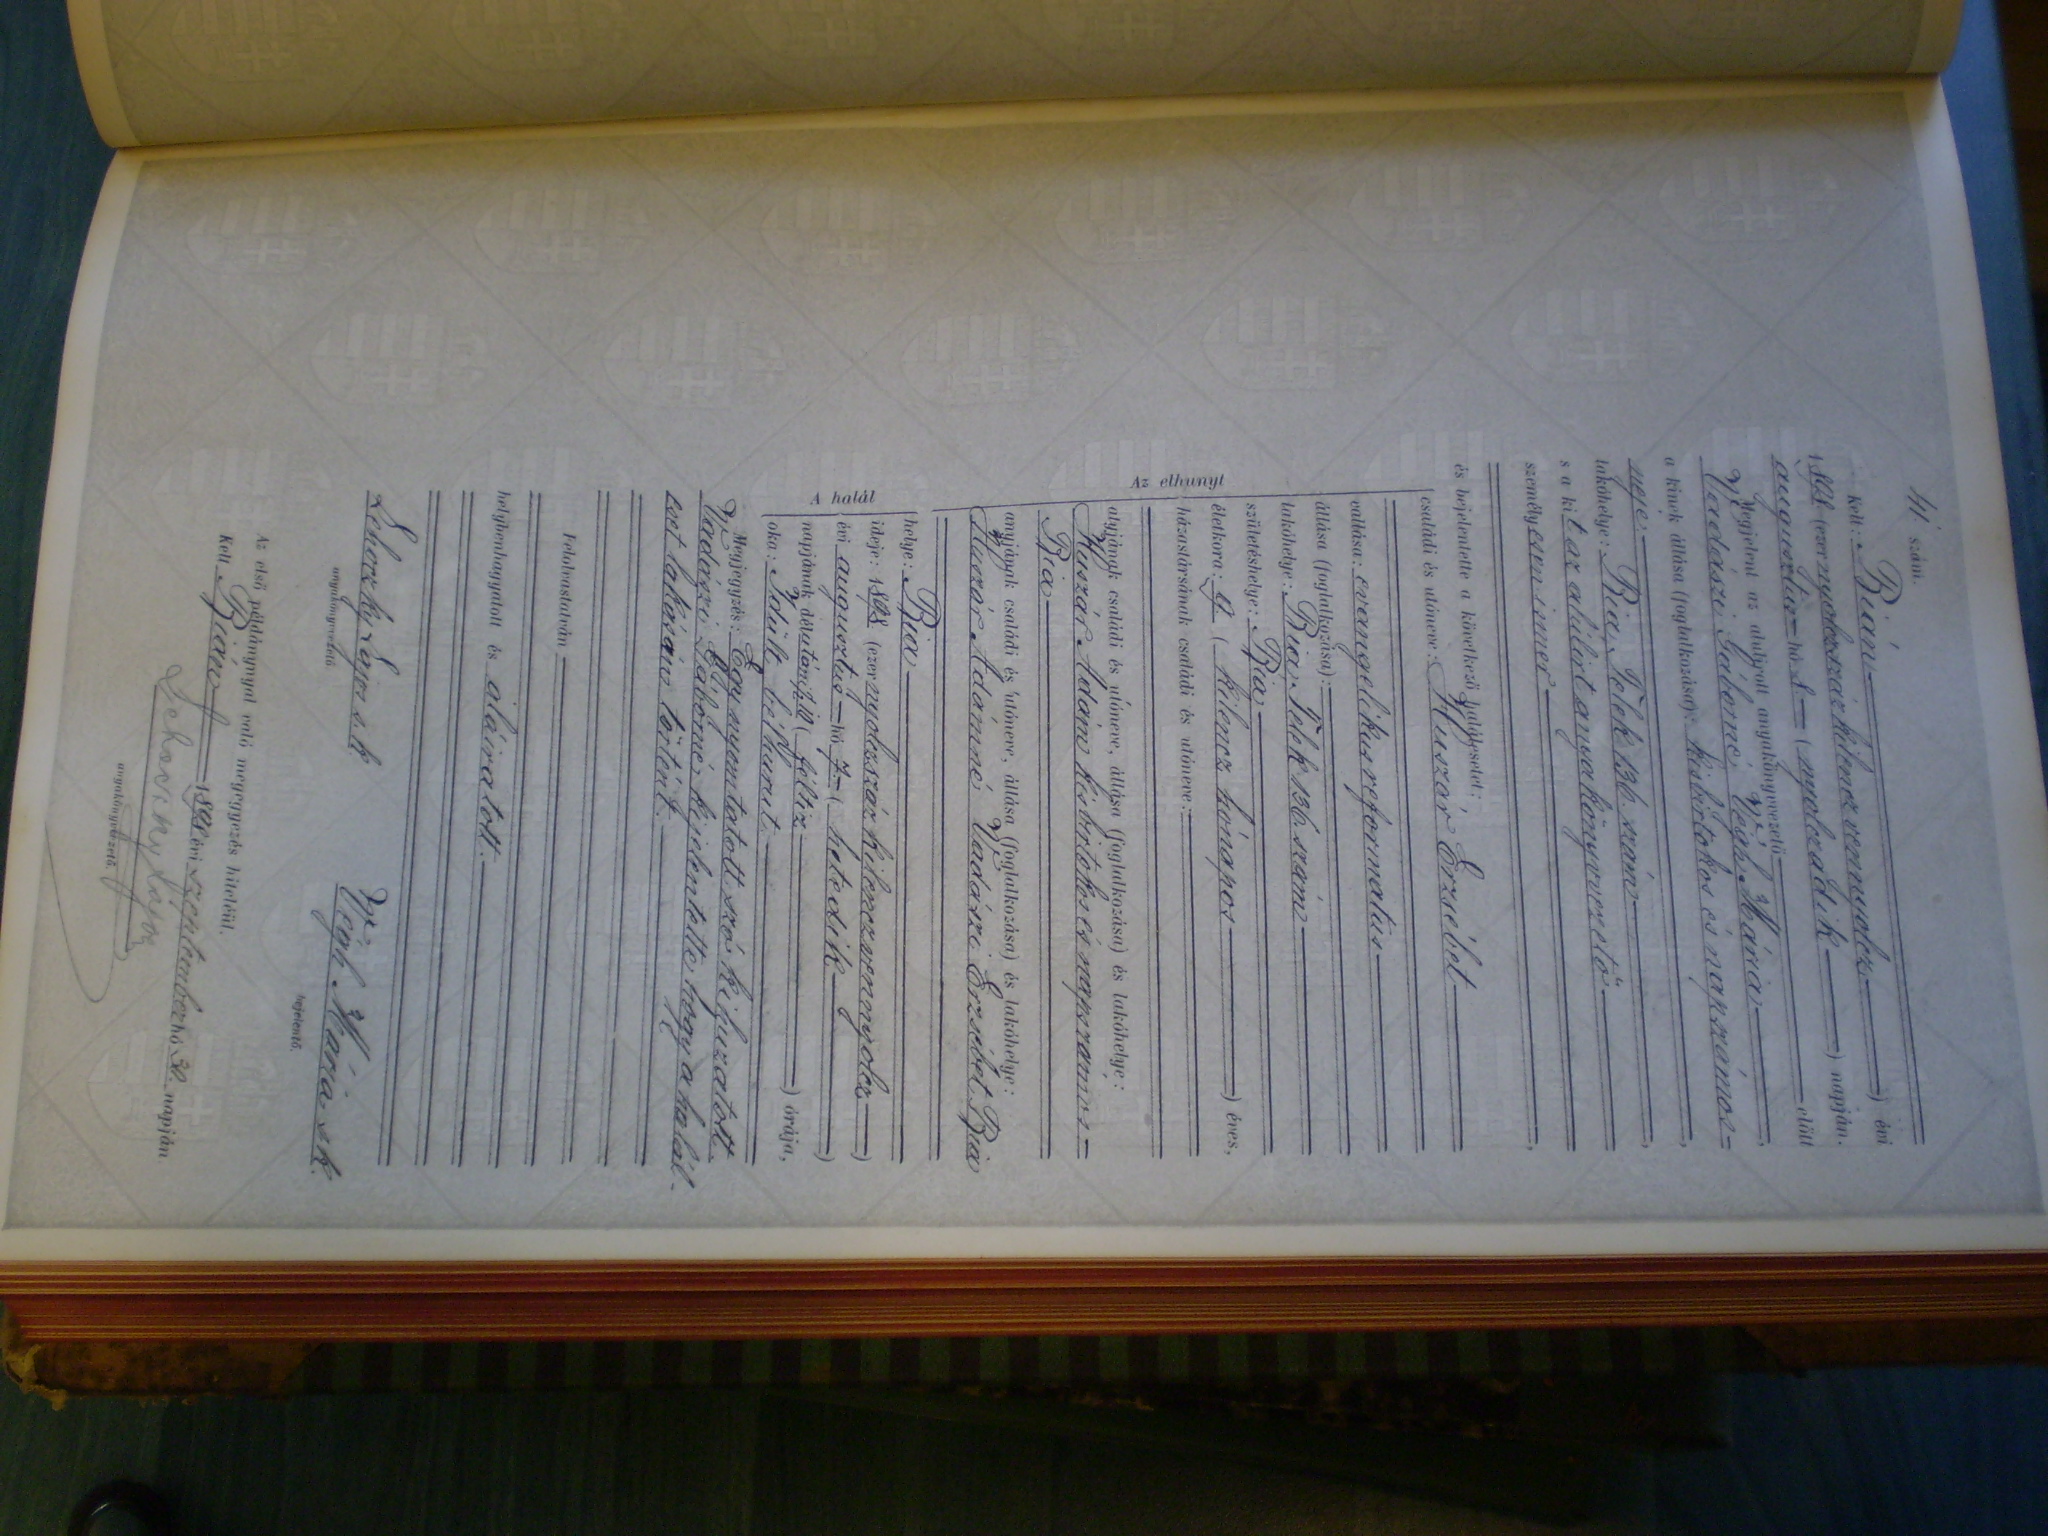 41. szám.
Kelt: Bián
1898 (ezernyolczszázkilenczvennyolcz) évi
augusztus hó 8 (nyolczadik) napján.
Megjelent az alulirott anyakönyvezető előtt
Vadászi Gáborné, Végh Mária,
a kinek állása (foglalkozása): kisbirtokos és napszámos-
neje
lakóhelye: Bia, Telek 136. szám,
s a kit az alulirt anyakönyvvezető
személyesen ismer,
és bejelentette a következő halálesetet:
Az elhunyt
családi és utóneve: Huszár Erzsébet
vallása: evangelikus reformatus
állása (foglalkozása):
lakóhelye: Bia, Telek 136 szám
születéshelye: Bia
életkora: 9. (kilencz hónapos) éves,
házastársának családi és utóneve:
atyjának családi és utóneve, állása (foglalkozása) és lakóhelye:
Huszár Ádám kisbirtokos és napszámos
Bia
anyjának családi és utóneve, állása (foglalkozása) és lakóhelye:
Huszár Ádámné, Vadászi Erzsébet, Bia
A halál
helye: Bia
ideje: 1898 (ezernyolczszázkilenczvennyolcz)
évi augusztus hó 7 (hetedik)
napjának délután f. 10 (féltiz) órája,
oka: Idült bélhurut.
Megjegyzés: Egy nyomtatott szó kihuzatott.
Vadászi Gáborné, kijelentette hogy a halál-
eset lakásán történt.
Felolvastatván
helybenhagyatott és aláiratott.
Lehoczky Lajos s. k
anyakönyvezető
Végh Mária s.k.
bejelentő.
Az első példánynyal való megegyezés hiteléül.
Kelt Bián, 1898 évi szeptember hó 30. napján
Lehoczky Lajos
anyakönyvezető.